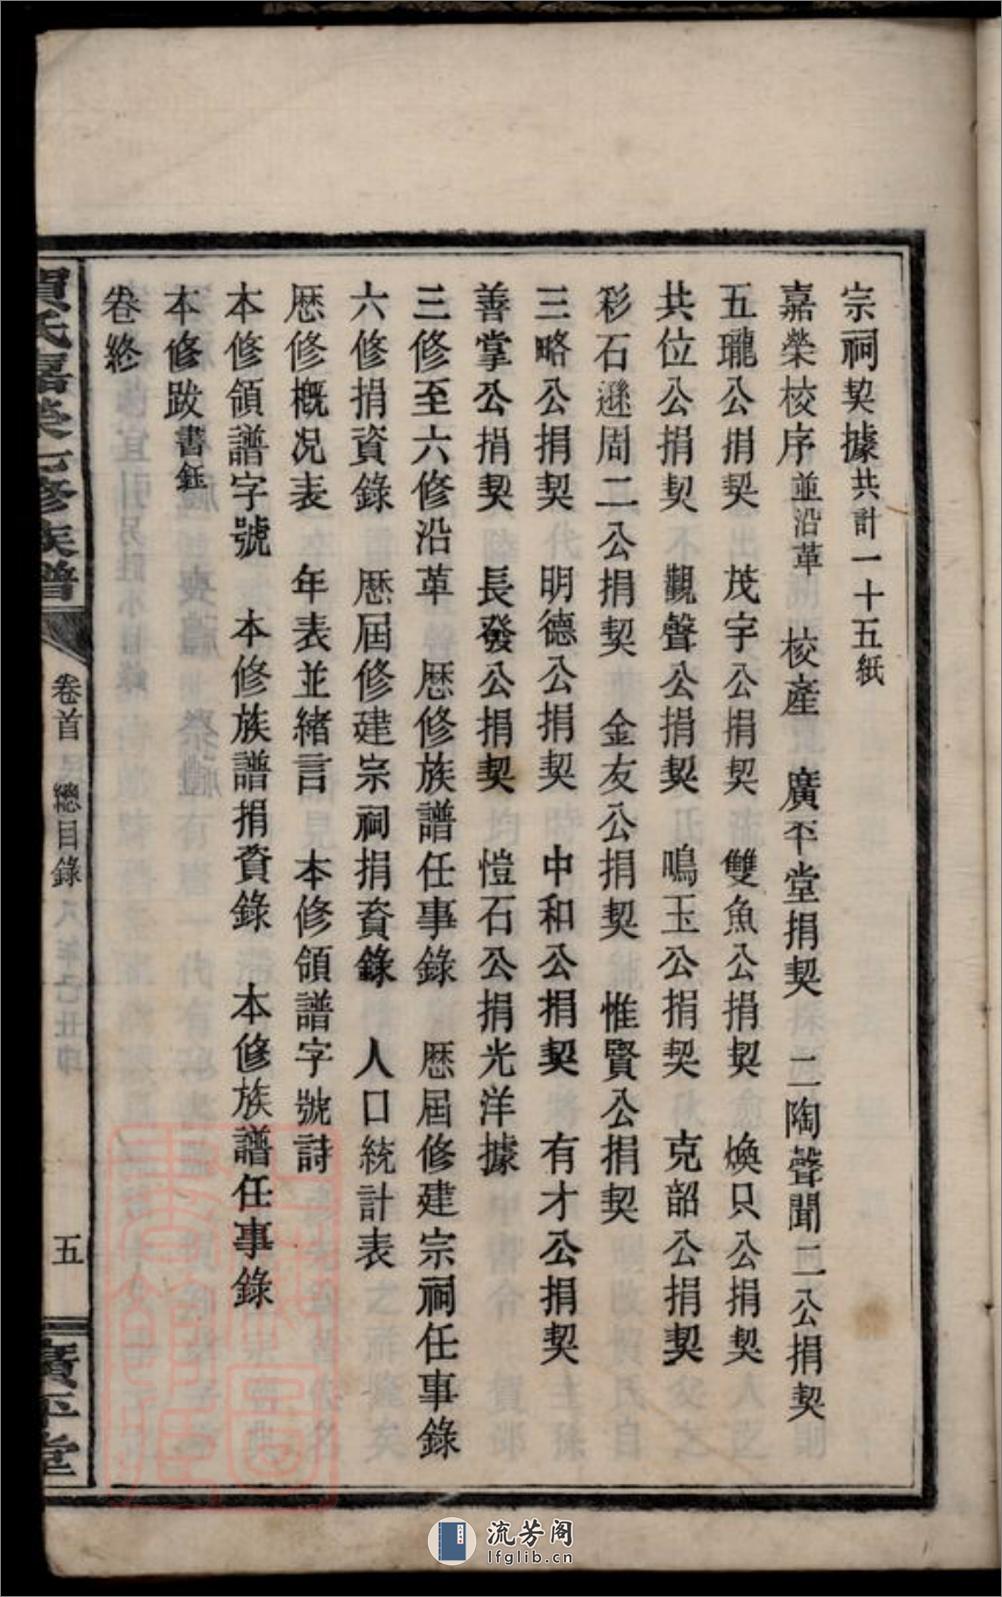 宗祠契據共計一十五紙
嘉榮校序並沿革　校產　廣平堂捐契　二陶聲聞二公捐契
五瓏公捐契　茂宇公捐契　雙魚公捐契　煥只公捐契
共位公捐契　觀聲公捐契　鳴玉公捐契　克韶公捐契
彩石遜周二公捐契　金友公捐契　惟賢公捐契
三略公捐契　明德公捐契　中和公捐契　有才公捐契
善掌公捐契　長發公捐契　愷石公捐光洋據
三修至六修沿革　歷修族譜任事錄　歷屆修建宗祠任事錄
六修捐資錄　歷屆修建宗祠捐資錄　人口統計表
歷修概况表　年表並緒言　本修領譜字號詩
本修領譜字號　本修族譜捐資錄　本修族譜任事錄
本修跋書鈺
卷終
賀氏嘉榮七修族譜
卷首
總目錄
五
廣平堂
流芳阁
lfglib.cn